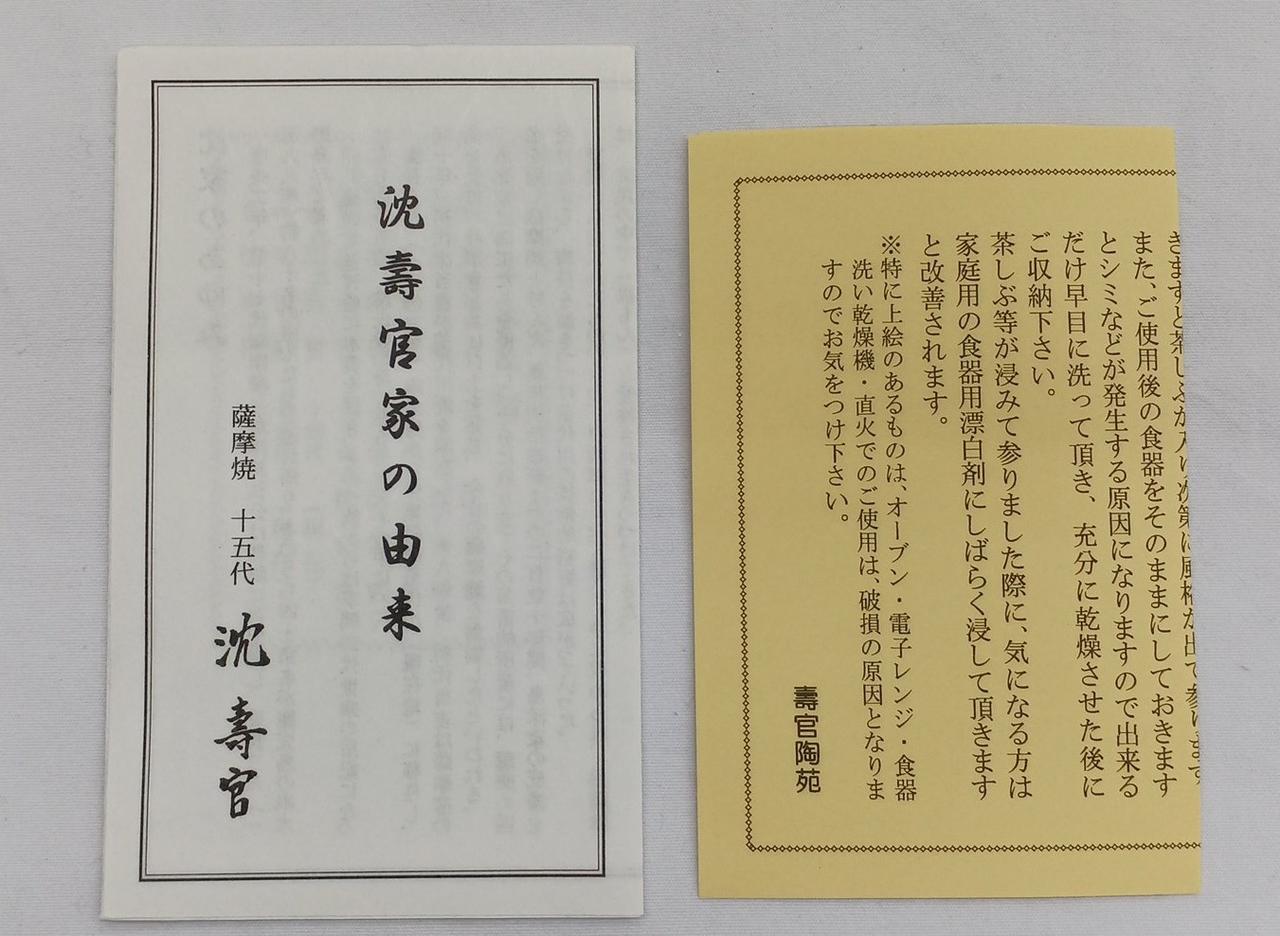 沈壽官家の由来
薩摩焼 十五代 沈壽官
きますと茶しぶが入り次第に風格が出て参ります
また、ご使用後の食器をそのままにしておきます
とシミなどが発生する原因になりますので出来る
だけ早目に洗って頂き、充分に乾燥させた後に
ご収納下さい。
茶しぶ等が浸みて参りました際に、気になる方は
家庭用の食器用漂白剤にしばらく浸して頂きます
と改善されます。
※特に上絵のあるものは、オーブン・電子レンジ・食器
洗い乾燥機・直火でのご使用は、破損の原因となりま
すのでお気をつけ下さい。
壽官陶苑